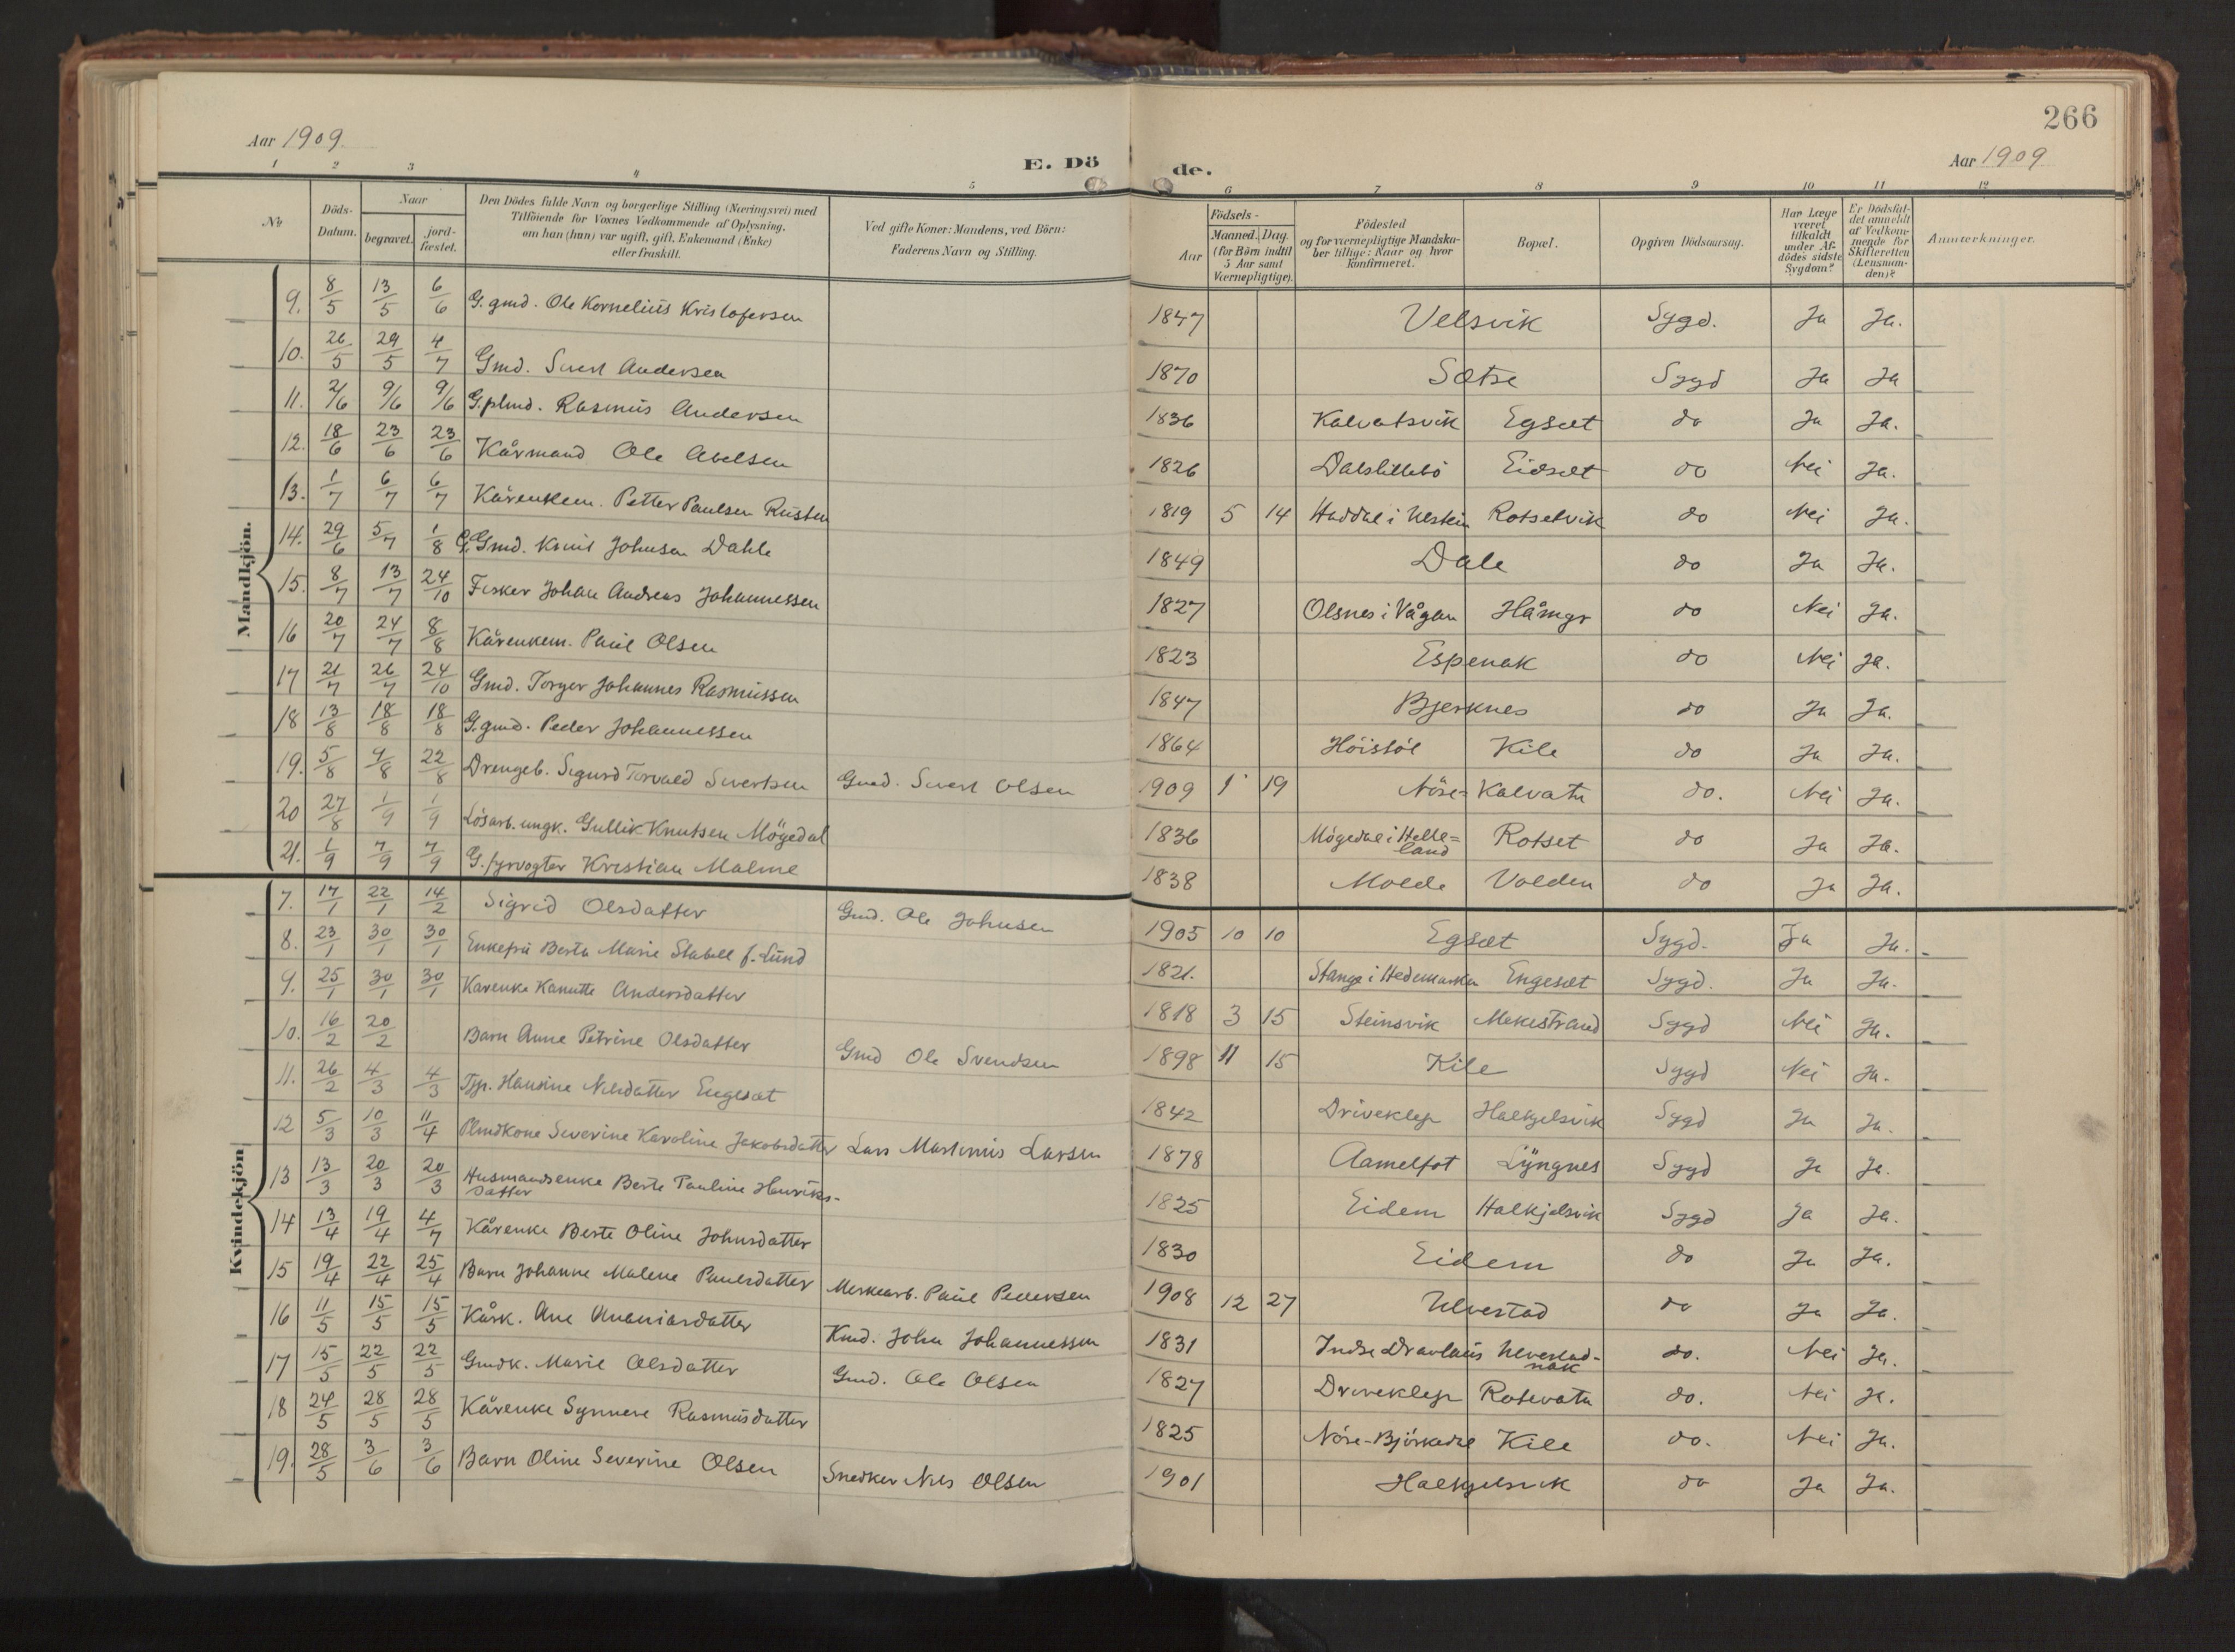 266
Aar 1909.
E. Dö de.
Aar 1909
1 2 3 4 5 6 7 8 9 10 11 12
No
Döds-Datum.
Naar
begravet.
jord-fæstet.
Den Dödes fulde Navn og borgerlige Stilling (Næringsvei) med
Tilföiende for Voxnes Vedkommende af Oplysning,
om han (hun) var ugift, gift, Enkemand (Enke)
eller fraskilt.
Ved gifte Koner: Mandens, ved Börn:
Faderens Navn og Stilling.
Födsels-
Aar
Maaned. Dag.
(for Börn indtil
5 Aar samt
Værnepligtige).
Födested
og for værnepligtige Mandska-
ber tillige: Naar og hvor
konfirmeret.
Bopæl.
Opgiven Dödsaarsag.
Har Læge
været
tilkaldt
under Af-
dödes sidste
Sygdom?
Er Dödsfal-
det anmeldt
af Vedkom-
mende for
Skifteretten
(Lensman-
den)?
Anmærkninger.
Mandkjön.
9. 8/5 13/5 6/6 G.gmd. Ole Kornelius Kristofersen 1847 Velsvik Sygd. Ja Ja.
10. 26/5 29/5 4/7 Gmd. Sivert Andersen 1870 Sætre Sygd Ja Ja
11. 2/6 9/6 9/6 G.plmd. Rasmus Andersen 1836 Kalvatsvik Egsæt do Ja Ja.
12. 18/6 23/6 23/6 Kårmand Ole Abelsen 1826 Dalslillebö Eidsæt do Nei Ja.
13. 1/7 6/7 6/7 Kårenkem. Petter Paulsen Rusten 1819 5 14 Haddal i Ulstein Rotsetvik do Nei Ja.
14. 29/6 5/7 1/8 G.Gmd. Knut Johnsen Dahle 1849 Dale do Ja Ja.
15. 8/7 13/7 24/10 Fisker Johan Andreas Johannessen 1827 Olsnes i Vågan Håmyr do Nei Ja.
16 20/7 24/7 8/8 Kårenkem. Paul Olsen 1823 Espenak do Nei Ja.
17 21/7 26/7 24/10 Gmd. Torger Johannes Rasmussen 1847 Bjerknes do Ja Ja.
18 13/8 18/8 18/8 G.gmd. Peder Johannessen 1864 Höistöl Kile do Ja Ja.
19. 5/8 9/8 22/8 Drengeb. Sigurd Torvald Sivertsen Gmd. Sivert Olsen 1909 1 19 Nöre-Kalvatn do. Nei Ja.
20 27/8 1/9 1/9 Lösarb. ungk. Gullik Knutsen Mögedal 1836 Mögedal i Helle=land Rotset do Ja Ja.
21. 1/9 7/9 7/9 G.fyrvogter Kristian Malme 1838 Molde Volden do Ja Ja.
Kvindekjön
7. 17/1 22/1 14/2 Sigrid Olsdatter Gmd. Ole Johnsen 1905 10 10 Egsæt Sygd. Ja Ja.
8. 23/1 30/1 30/1 Enkefru Berta Marie Stabell f. Lund 1821. Stange i Hedemarken Engesæt Sygd. Ja Ja.
9. 25/1 30/1 30/1 Karenke Kanutte Andersdatter 1818 3 15 Steinsvik Mekestrand Sygd Nei Ja.
10. 16/2 20/2 Barn Anne Petrine Olsdatter Gmd Ole Svendsen 1898 11 15 Kile Sygd Nei Ja.
11. 26/2 4/3 4/3 Tjp. Hansine Nilsdatter Engesæt 1842 Driveklep Halkjelsvik Sygd Ja Ja.
12 5/3 10/3 11/4 Plmdkone Severine Karoline Jakobsdatter Lars Martinus Larsen 1878 Aamelfot Lyngnes Sygd Ja Ja.
13 13/3 20/3 20/3 Husmandsenke Berte Pauline Henriks-datter 1825 Eidem Halkjelsvik Sygd Ja Ja.
14 13/4 19/4 4/7 Kårenke Berte Oline Johnsdatter 1830 Eidem do Ja Ja.
15 19/4 22/4 25/4 Barn Johanne Malene Paulsdatter Murkearb. Paul Pettersen 1908 12 27 Ulvestad do Ja Ja.
16 11/5 15/5 15/5 Kårk. Ane Ananiasdatter Kmd. John Johannessen 1831 Indre Dravlaus Ulvestad-nak do. Nei Ja.
17 15/5 22/5 22/5 Gmdk. Marie Olsdatter Gmd. Ole Olsen 1827 Driveklep Rotevatn do. Nei Ja.
18 24/5 28/5 28/5 Kårenke Synnere Rasmusdatter 1825 Nöre-Björkedal Kile do. Nei Ja.
19. 28/5 3/6 3/6 Barn Oline Severine Olsen Snedker Nils Olsen 1901 Halkjelsvik do Ja Ja.